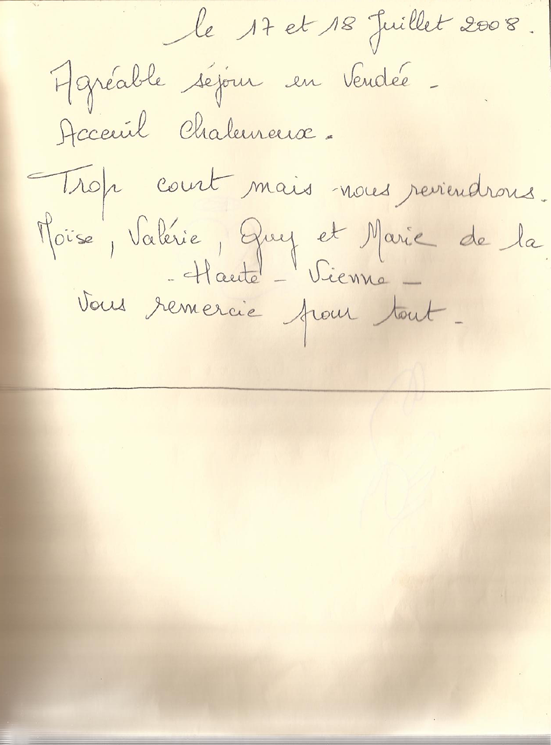 le 17 et 18 Juillet 2008.
Agréable séjour en Vendée -
Acceuil Chaleureux.
Trop court mais nous reviendrons.
Moïse, Valérie, Guy et Marie de la
- Haute - Vienne -
Vous remercie pour tout -